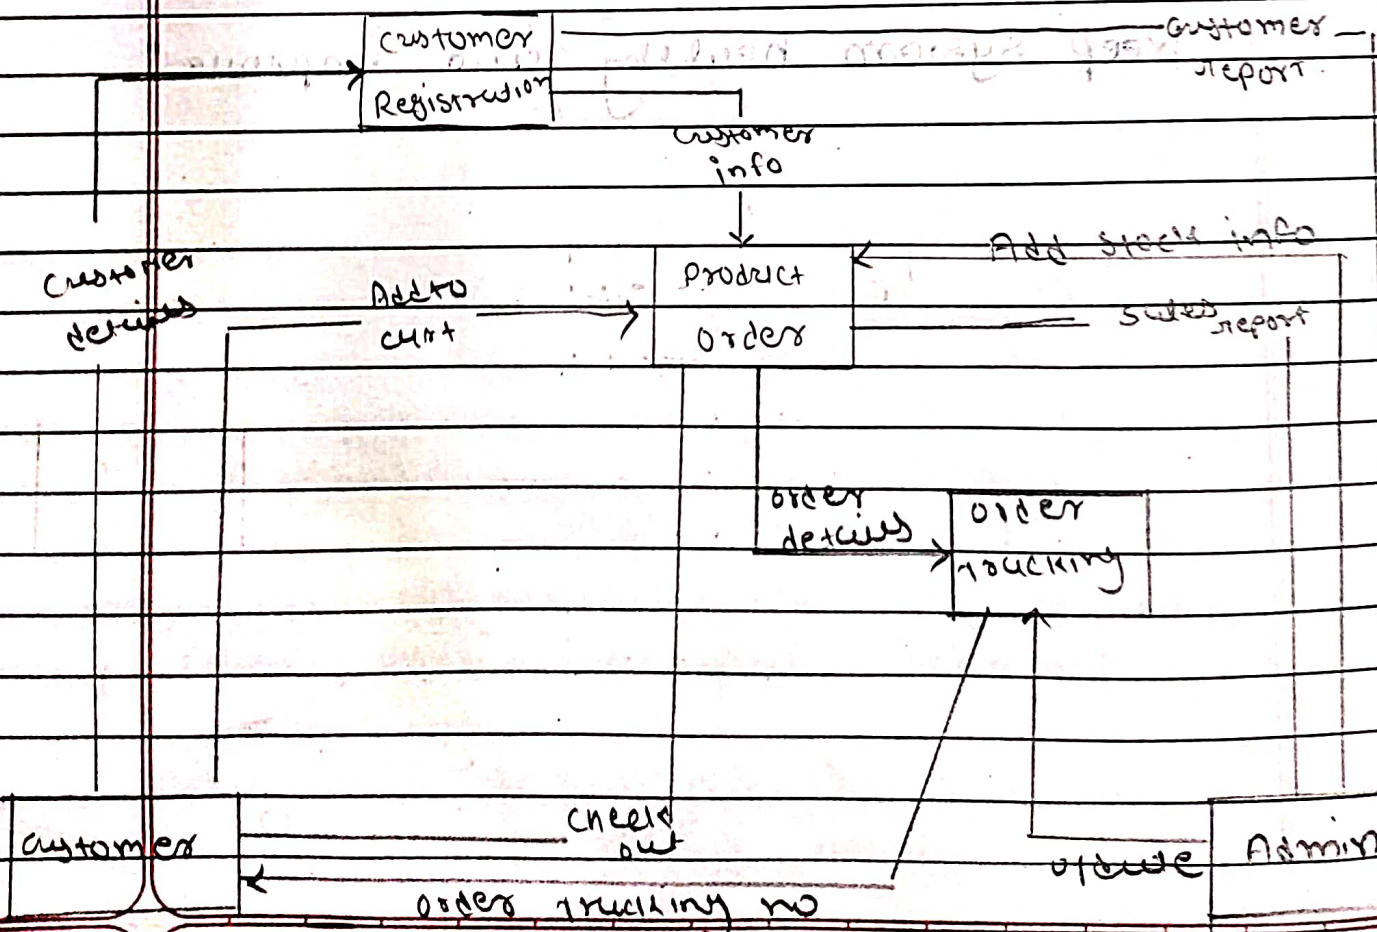 Customer
Registration
Customer
report
Customer
info
Customer
details
Add to
cart
Product
order
Add stock info
Sales
report
order
details
order
tracking
Customer
Check
out
order tracking no
update
Admin